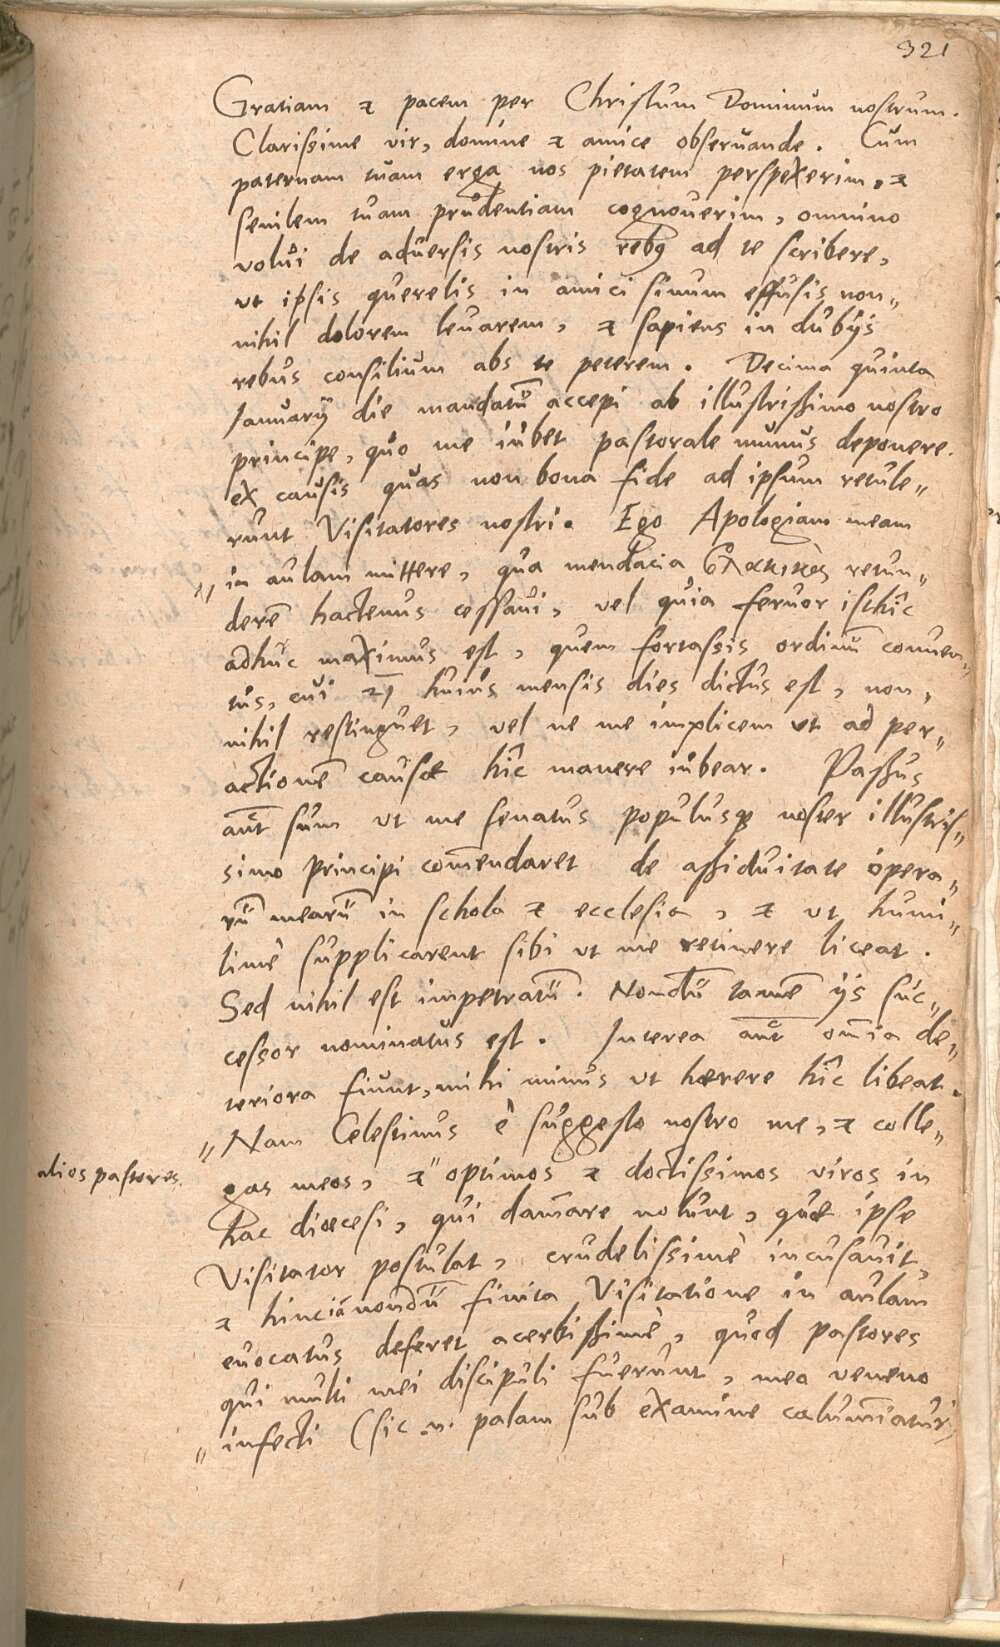 321
Gratiam & pacem per Christum Dominum nostrum.
Clarissime vir, domine & amice obseruande. Cum
paternam tuam erga nos pietatem perspexerim, &
senilem tuam prudentiam cognouerim, omnino
volui de aduersis nostris rebꝫ ad te scribere,
vt ipsis querelis in amici sinum effusis non„
nihil dolorem leuarem, & sapiens in dubijs
rebus consilium abs te peterem. Decima quinta
Ianuarij die mandatū accepi ab illustrissimo nostro
principe, quo me iubet pastorale munus deponere.
ex causis quas non bona fide ad ipsum retule„
runt Visitatores nostri. Ego Apologiam meam
„ in aulam mittere, qua mendacia retun„
derē hactenus cessaui, vel quia feruor isthîc
adhuc maximus est, quem fortassis ordinū conuen„
tus, cui 27 huius mensis dies dictus est, non„
nihil restinguet, vel ne me implicem vt ad per„
actionē causæ hîc manere iubear. Passus
aūt sum vt me senatus populusqꝫ noster illustris„
simo principi com̄endaret de assiduitate opera„
rū mearū in schola & ecclesia, & vt humi„
limè supplicarent sibi vt me retinere liceat.
Sed nihil est impetratū. Nondū tamē ijs suc„
cessor nominatus est. Interea aūt om̄ia de„
teriora fiunt, mihi minus vt hærere hîc libeat.
„ Nam Celestinus è suggesto nostro me, & colle„
alios pastores.
gas meos, & " optimos & doctissimos viros in
hac diœcesi, qui dam̄are nolunt, quæ ipse
Visitator postulat, crudelissimè incusauit,
& hinc iā nondū finita Visitatione in aulam
euocatus deferet acerbissimè, quod pastores
qui multi mei discipuli fuerunt, meo veneno
„ infecti (sic .n. palam sub examine calum̄iatur)